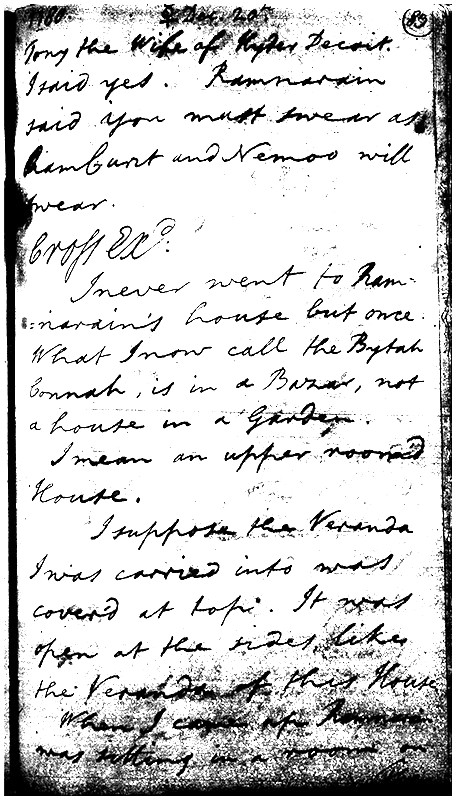 1780. Dec. 20th 89
Tony the Wife of Hyder Decoit.
I said yes. Ramnarain
said you must swear as
RamCurit and Nemoo will
swear.
Cross Exd.
I never went to Ram-
=narain's house but once.
What I now call the Bytah
Connah, is in a Bazar, not
a house in a Garden.
I mean an upper room'd
House.
I suppose the Veranda
I was carried into was
cover'd at top. It was
open at the sides, like
the Veranda of this House
When I came up Ramna
was sitting in a room on